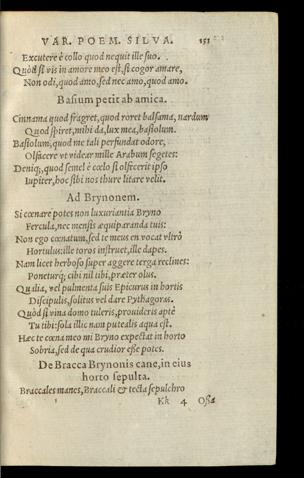 VAR. POEM. SILVA. 151
Excutere è collo quod nequit ille suo.
Quòd si vis in amore meo est, si cogor amare,
Non odi, quod amo, sed nec amo, quod amo.
Basium petit ab amica.
Cinnama quod fragret, quod roret balsama, nardum
Quod spiret, mihi da, lux mea, basiolum.
Basiolum, quod me tali perfundat odore,
Olfacere vt videar mille Arabum segetes:
Deniq;, quod semel è cœlo si olfecerit ipso
Iupiter, hoc sibi nos thure litare velit.
Ad Brynonem.
Si cœnare potes non luxuriantia Bryno
Fercula, nec mensis æquiparanda tuis:
Non ego cœnatum, sed te meus en vocat vltrò
Hortulus: ille toros instruet, ille dapes.
Nam licet herboso super aggere terga reclines:
Poneturq; cibi nil tibi, præter olus.
Qualia, vel pulmenta suis Epicurus in hortis
Discipulis, solitus vel dare Pythagoras.
Quòd si vina domo tuleris, prouideris aptè
Tu tibi: sola illic nam putealis aqua est.
Hæc te cœna meo mi Bryno expectat in horto
Sobria, sed de qua crudior esse potes.
De Bracca Brynonis cane, in eius
horto sepulta.
Braccales manes, Braccali & tecta sepulchro
Kk 4 Ossa